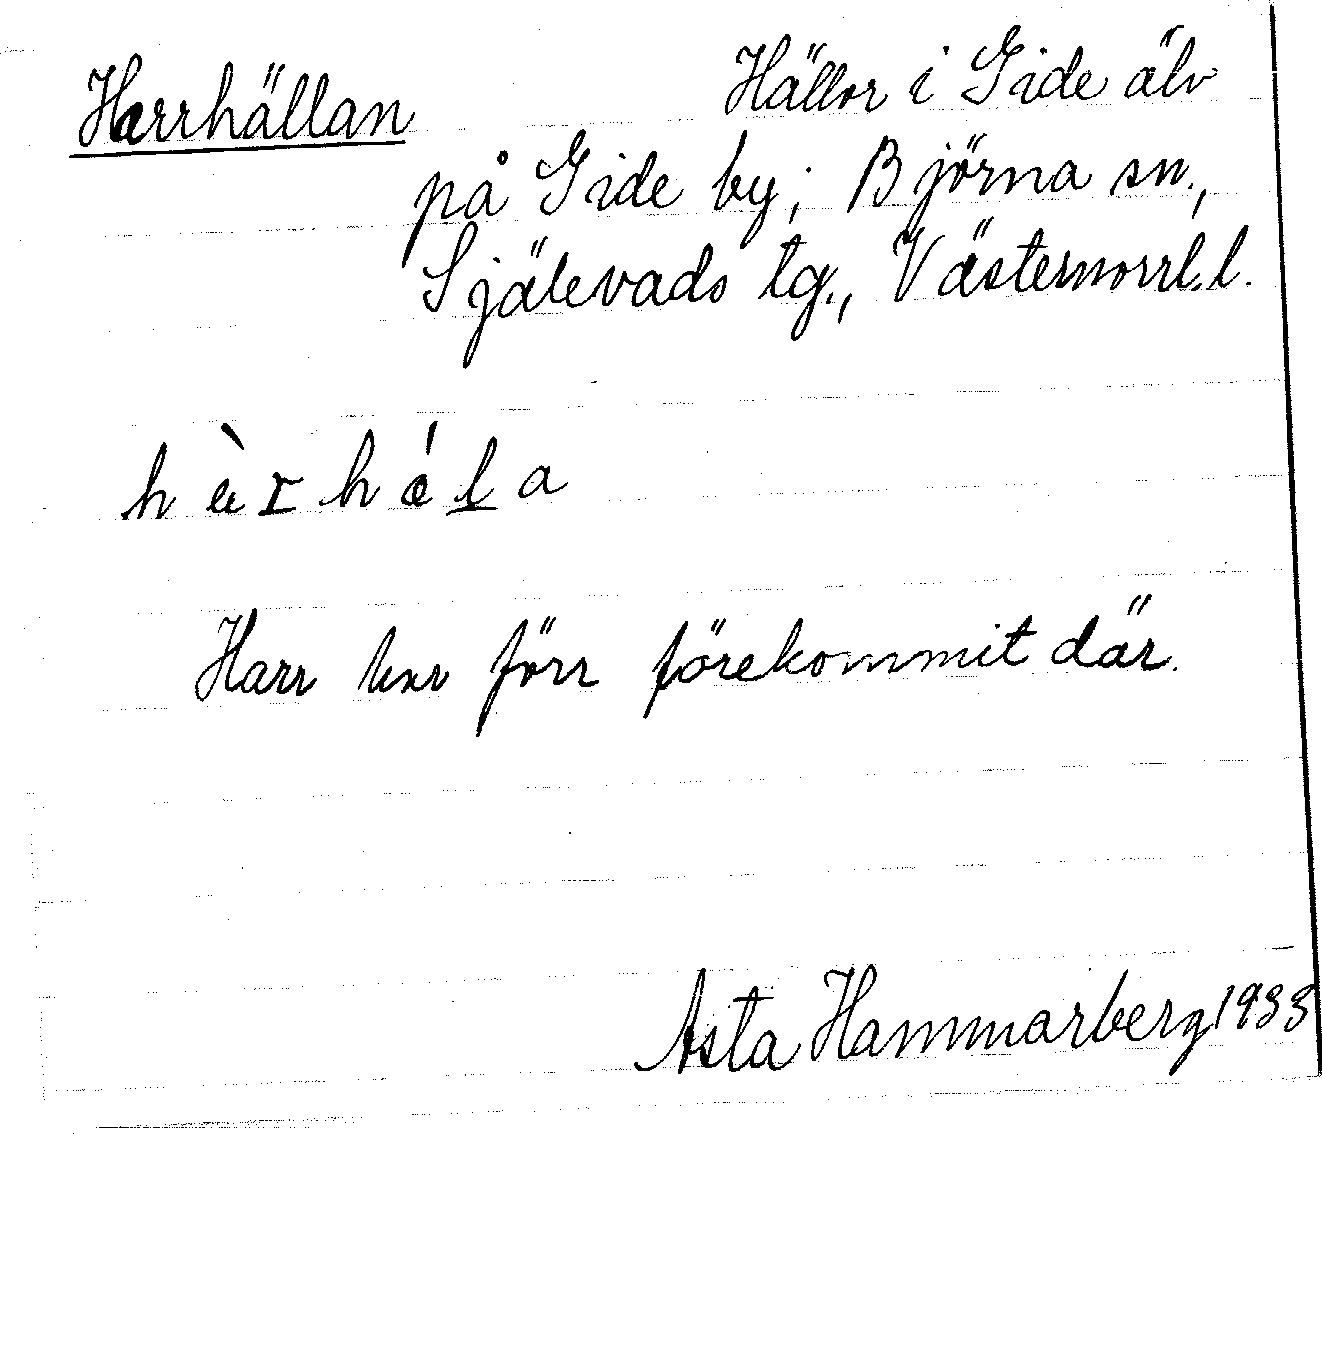 Harrhällan
Hällor i Gide älv
på Gide by; Björna sn.,
Själevads tg., Västernorrl.l.
Harr har förr förekommit där.
Asta Hammarberg 1933